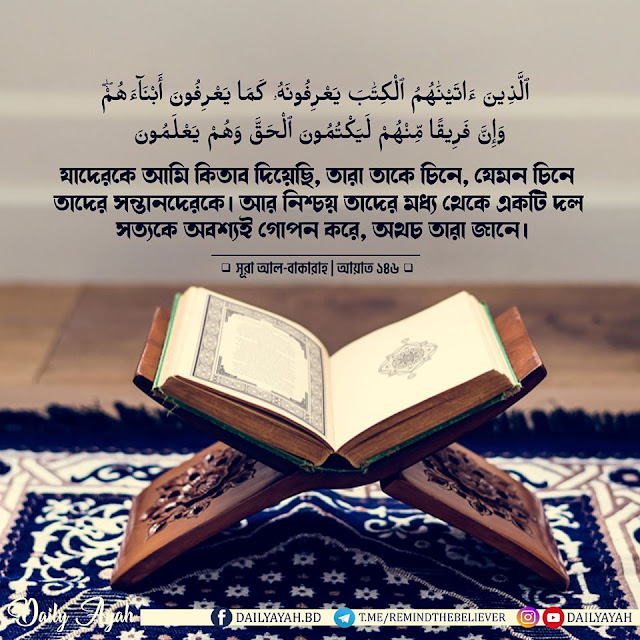 ٱلَّذِينَ ءَاتَيْنَٰهُمُ ٱلْكِتَٰبَ يَعْرِفُونَهُۥ كَمَا يَعْرِفُونَ أَبْنَآءَهُمْ ۖ
وَإِنَّ فَرِيقًا مِّنْهُمْ لَيَكْتُمُونَ ٱلْحَقَّ وَهُمْ يَعْلَمُونَ
যাদেরকে আমি কিতাব দিয়েছি, তারা তাকে চিনে, যেমন চিনে
তাদের সন্তানদেরকে। আর নিশ্চয় তাদের মধ্য থেকে একটি দল
সত্যকে অবশ্যই গোপন করে, অথচ তারা জানে।
সূরা আল-বাকারাহ | আয়াত ১৪৬
Daily Ayah DAILYAYAH.BD T.ME/REMINDTHEBELIEVER DAILYAYAH